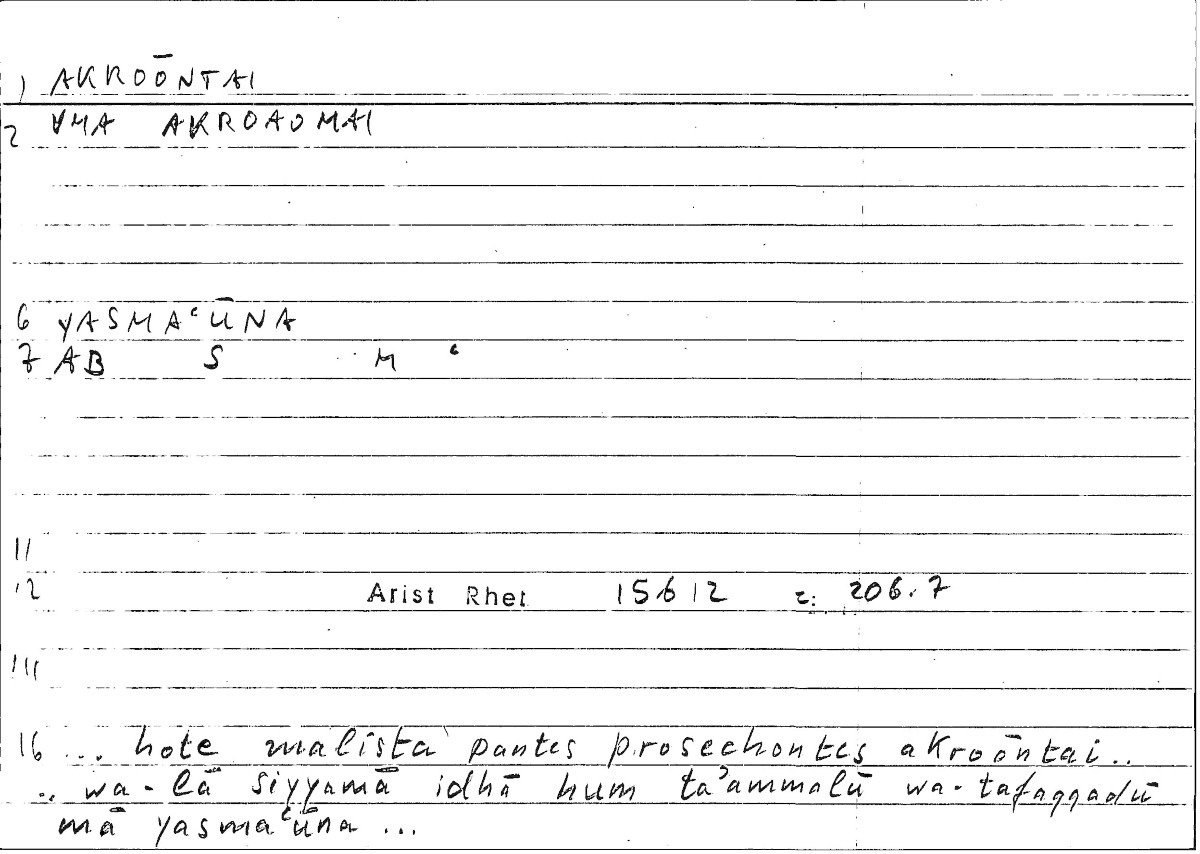 1) AKROŌNTAI
2 VMA AKROAOMAI
6 YASMAʿŪNA
7 AB S M ʿ
11
12 Arist Rhet 15612 206.7
14
16 ... hote malista pantes prosechontes akroōntai..
.. wa-lā siyyamā idhā hum taʾammalū wa-tafaqqadū
mā yasmaʿūna ...